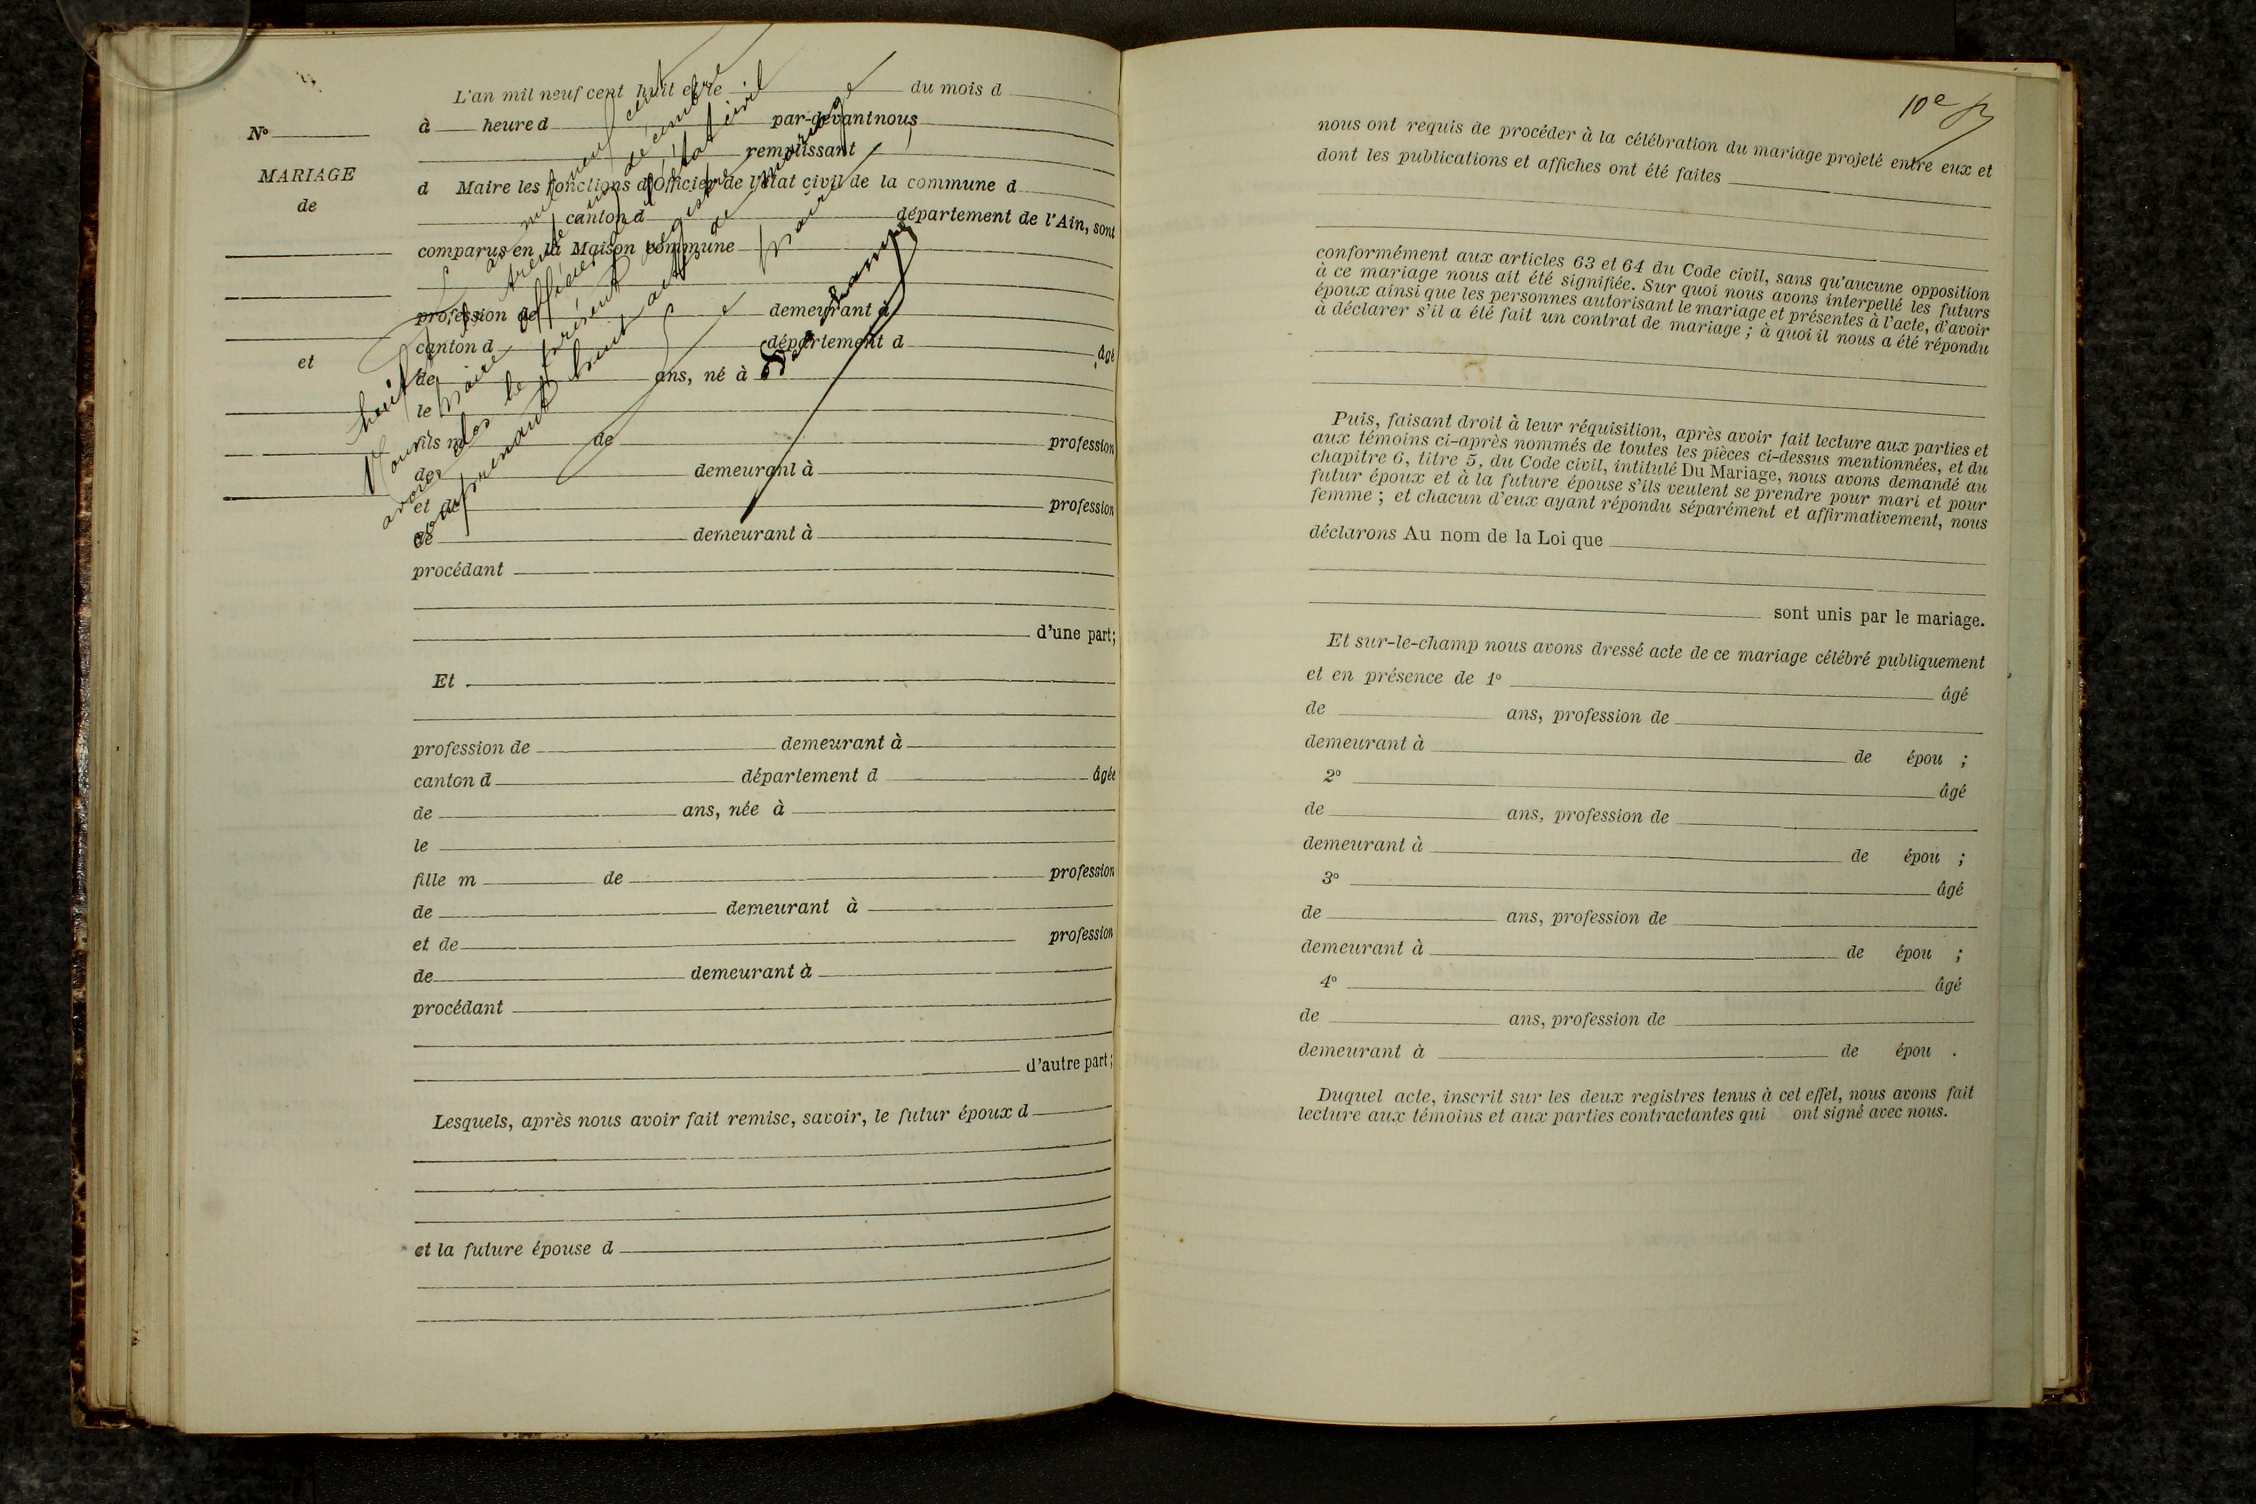 L'an mil neuf cent huit et le du mois d
N° à heure d par-devant nous
remplissant
MARIAGE
d Maire les fonctions d'Officier de l'état civil de la commune d
de
canton d département de l'Ain, sont
comparus en la Maison commune
profession de demeurant à
canton d département d âgé
et
de ans, né à
le
fils m de profession
de demeurant à
et de profession
de demeurant à
procédant
d'une part;
Et
profession de demeurant à
canton d département d âgée
de ans, née à
le
fille m de profession
de demeurant à
et de profession
de demeurant à
procédant
d'autre part;
Lesquels, après nous avoir fait remise, savoir, le futur époux d
et la future épouse d
L'an mil neuf cent
huit le trente un décembre
Nous Maire officier de l'état civil
avons clos le présent registre
comprenant huit actes de mariage
Le Maire
Deschamps
10e
nous ont requis de procéder à la célébration du mariage projeté entre eux et
dont les publications et affiches ont été faites
conformément aux articles 63 et 64 du Code civil, sans qu'aucune opposition
à ce mariage nous ait été signifiée. Sur quoi nous avons interpellé les futurs
époux ainsi que les personnes autorisant le mariage et présentes à l'acte, d'avoir
à déclarer s'il a été fait un contrat de mariage ; à quoi il nous a été répondu
Puis, faisant droit à leur réquisition, après avoir fait lecture aux parties et
aux témoins ci-après nommés de toutes les pièces ci-dessus mentionnées, et du
chapitre 6, titre 5, du Code civil, intitulé Du Mariage, nous avons demandé au
futur époux et à la future épouse s'ils veulent se prendre pour mari et pour
femme ; et chacun d'eux ayant répondu séparément et affirmativement, nous
déclarons Au nom de la Loi que
sont unis par le mariage.
Et sur-le-champ nous avons dressé acte de ce mariage célébré publiquement
et en présence de 1° âgé
de ans, profession de
demeurant à de épou ;
2° âgé
de ans, profession de
demeurant à de épou ;
3° âgé
de ans, profession de
demeurant à de épou ;
4° âgé
de ans, profession de
demeurant à de épou .
Duquel acte, inscrit sur les deux registres tenus à cet effet, nous avons fait
lecture aux témoins et aux parties contractantes qui ont signé avec nous.